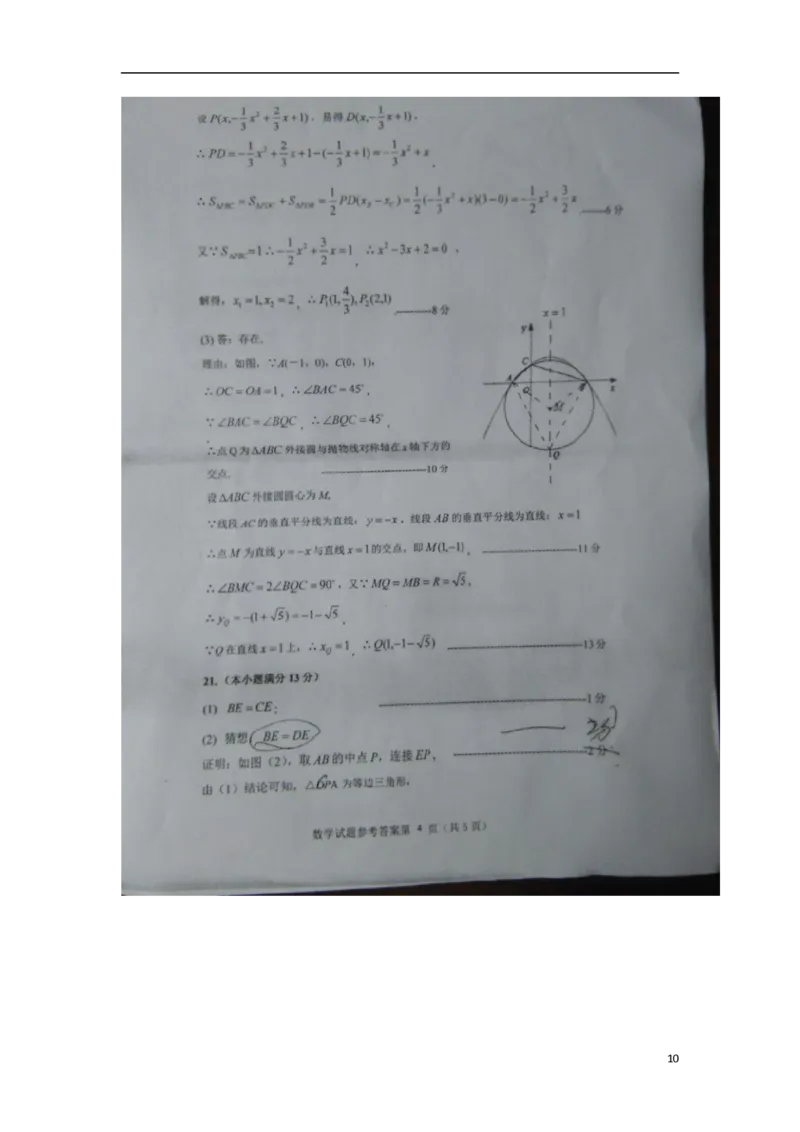 设P(x,-1/3x²+2/3x+1)．易得D(x,-1/3x+1)．
∴PD=-1/3x²+2/3x+1-(-1/3x+1)=-1/3x²+x．
∴S△PBC=S△PDC+S△PDB=1/2PD(x_B-x_C)=1/2(-1/3x²+x)(3-0)=-1/2x²+3/2x ………6分
又∵S△PBC=1∴-1/2x²+3/2x=1，∴x²-3x+2=0．
解得，x₁=1,x₂=2，∴P₁(1,4/3),P₂(2,1) ………8分
(3)答：存在．
理由：如图，∵A(-1，0)，C(0，1)，
∴OC=OA=1，∴∠BAC=45°，
∵∠BAC=∠BQC，∴∠BQC=45°，
∴点Q为△ABC外接圆与抛物线对称轴在x轴下方的
交点． ………10分
设△ABC外接圆圆心为M，
∵线段AC的垂直平分线为直线：y=-x，线段AB的垂直平分线为直线：x=1
∴点M为直线y=-x与直线x=1的交点，即M(1,-1)， ………11分
∴∠BMC=2∠BQC=90°，又∵MQ=MB=R=√5，
∴y_Q=-(1+√5)=-1-√5，
∵Q在直线x=1上，∴x_Q=1，∴Q(1,-1-√5) ………13分
x=1
y
C
A
x
O
M
Q
21.（本小题满分13分）
(1) BE=CE； ………1分
(2) 猜想 BE=DE —— 3分
证明：如图（2），取AB的中点P，连接EP， ………2分
由（1）结论可知，△EPA为等边三角形，
数学试题参考答案第 4 页（共5页）
10